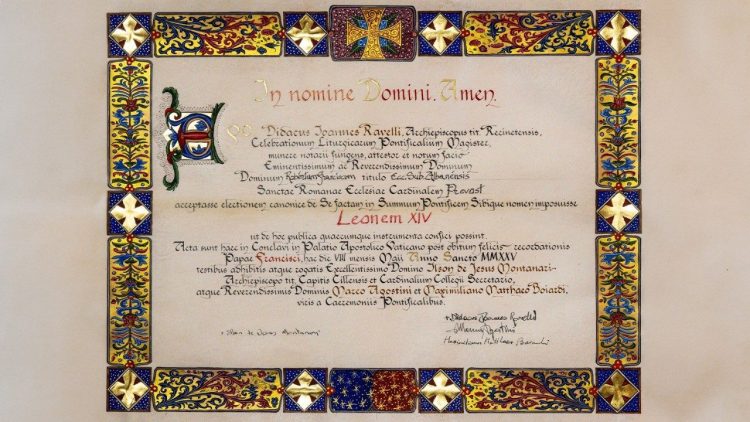 In nomine Domini. Amen.
Ego
Didacus Ioannes Ravelli, Archiepiscopus tit Recinetensis,
Celebrationum Liturgicarum Pontificalium Magister,
munere notarii fungens, attestor et notum facio
Eminentissimum ac Reverendissimum Dominum
Dominum Robertum Franciscum titulo Ecc. Sub. Albanensis
Sanctae Romanae Ecclesiae Cardinalem Prevost
acceptasse electionem canonice de Se factam in Summum Pontificem Sibique nomen imposuisse
Leonem XIV
ut de hoc publica quaecumque instrumenta confici possint.
Acta sunt haec in Conclavi in Palatio Apostolico Vaticano post obitum felicis recordationis
Papae Francisci, hac die VIII mensis Maii Anno Sancto MMXXV
testibus adhibitis atque rogatis Excellentissimo Domino Ilson de Jesus Montanari
Archiepiscopo tit. Capitis Cillensis et Cardinalium Collegii Secretario,
atque Reverendissimis Dominis Marco Agostini et Maximiliano Matthaeo Boiardi,
viris a Caeremoniis Pontificalibus.
Didacus Ioannes Ravelli
Marcus Agostini
Ilson de Jesus Montanari
Maximilianus Matthaeus Boiardi